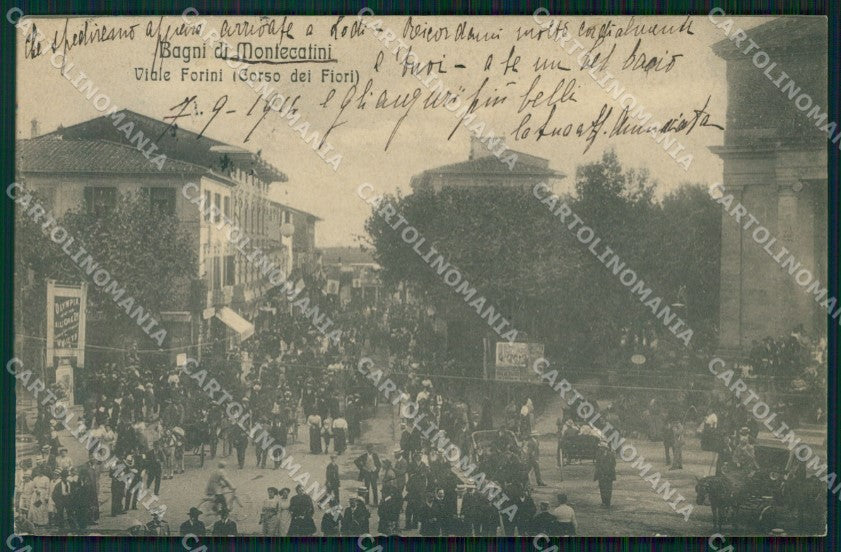 che spediremo appena arrivate a Lodi - Ricordami molto cordialmente
Bagni di Montecatini
e tuoi - a te un bel bacio
Viale Forini (Corso dei Fiori)
7-9-1911 e gli auguri più belli
Annunziata
OLYMPIA
CARTOLINOMANIA
CARTOLINOMANIA
CARTOLINOMANIA
CARTOLINOMANIA
CARTOLINOMANIA
CARTOLINOMANIA
CARTOLINOMANIA
CARTOLINOMANIA
CARTOLINOMANIA
CARTOLINOMANIA
CARTOLINOMANIA
CARTOLINOMANIA
CARTOLINOMANIA
CARTOLINOMANIA
CARTOLINOMANIA